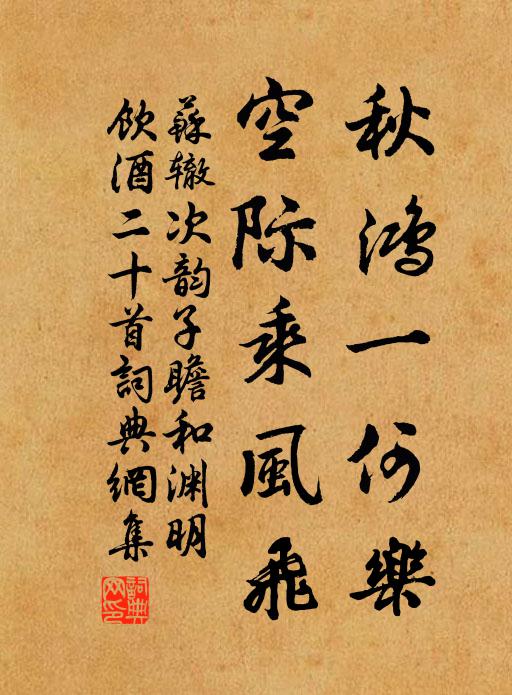 秋鸿一何樂
空际乘風飛
蘇辙次韵子瞻和渊明
飲酒二十首詞典網集
詞典网印